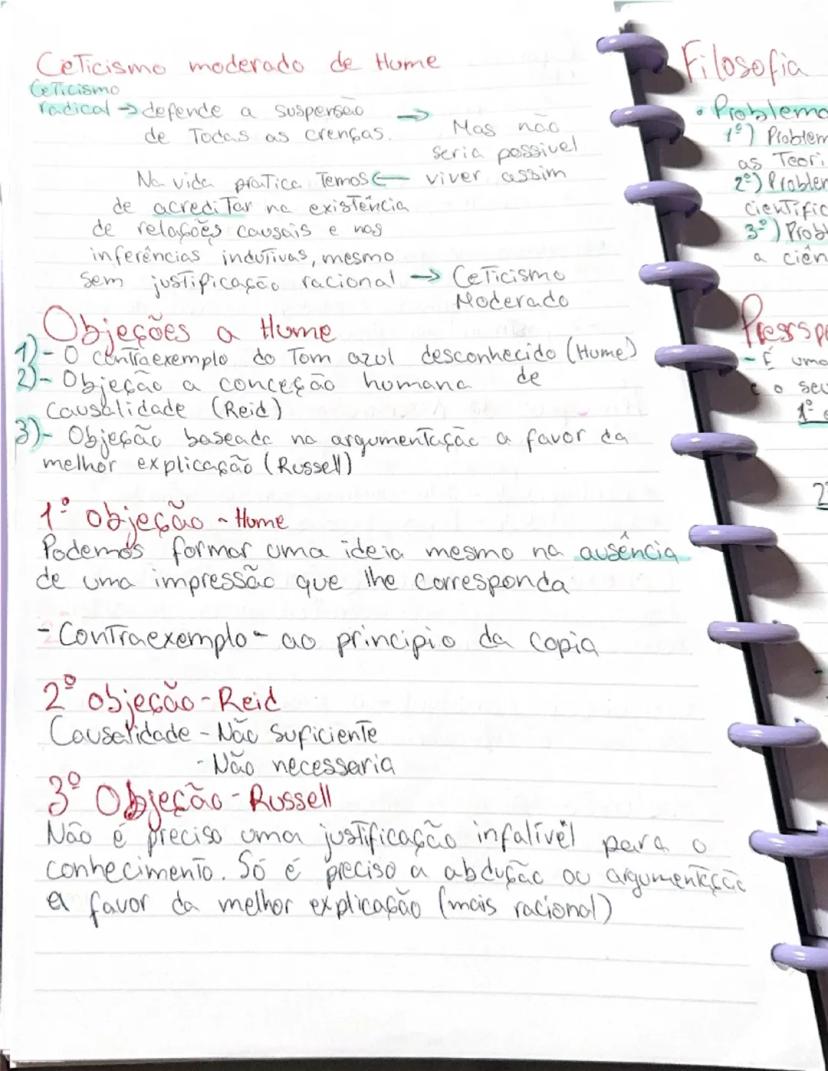 Ceticismo moderado de Hume
Ceticismo
radical → defende a suspensão →
de todas as crenças.
Mas não
seria possivel
viver assim
Na vida pratica temos ←
de acreditar na existência
de relações causais e nas
inferências indutivas, mesmo
sem justificação racional → Ceticismo
Moderado
Objeções a Hume
1)- O contraexemplo do Tom azul desconhecido (Hume)
2)- Objeção a conceção humana de
Causalidade (Reid)
3)- Objeção baseada na argumentação a favor da
melhor explicação (Russell)
1º objeção - Hume
Podemos formar uma ideia mesmo na ausência
de uma impressão que lhe corresponda
- Contraexemplo - ao principio da copia
2º objeção - Reid
Causalidade - Não suficiente
- Não necessaria
3º Objeção - Russell
Não é preciso uma justificação infalível para o
conhecimento. Só é preciso a abdução ou argumentação
a favor da melhor explicação (mais racional)
Filosofia
• Problema
1º) Problem
as Teori
2º) Problem
cientific
3º) Prob
a ciên
- É uma
e o seu
1º
2